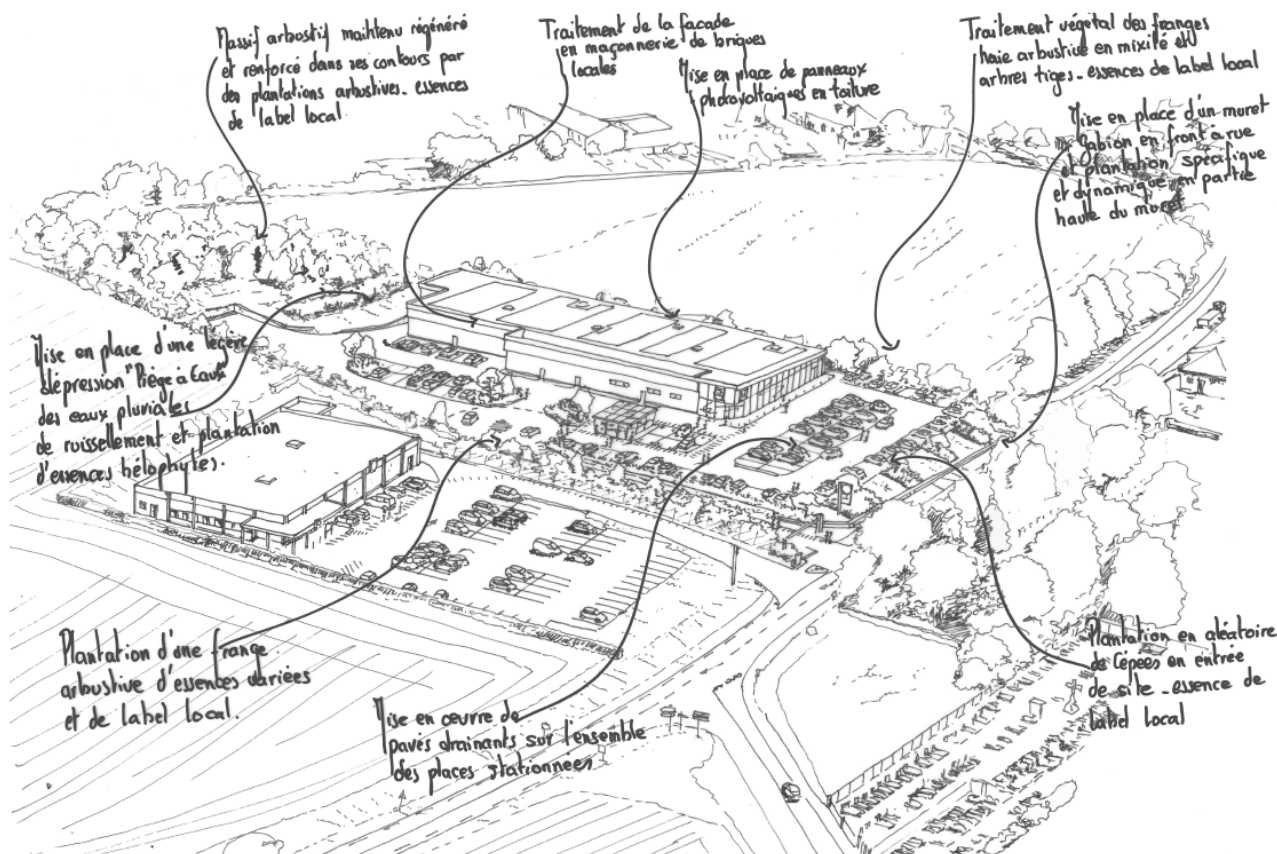 Massif arbustif maintenu régénéré
et renforcé dans ses contours par
des plantations arbustives - essences
de label local.
Traitement de la façade
en maçonnerie de briques
locales
Mise en place de panneaux
photovoltaïques en toiture
Traitement végétal des franges
haie arbustive en mixité et
arbres tiges - essences de label local
Mise en place d'un muret
Gabion en front à rue
et plantation spécifique
et dynamique en partie
haute du muret
Mise en place d'une légère
dépression "Piège à Eaux"
des eaux pluviales
de ruissellement et plantation
d'essences hélophytes.
Plantation d'une frange
arbustive d'essences variées
et de label local.
Mise en œuvre de
pavés drainants sur l'ensemble
des places stationnées
Plantation en aléatoire
de Cépées en entrée
de site - essence de
label local